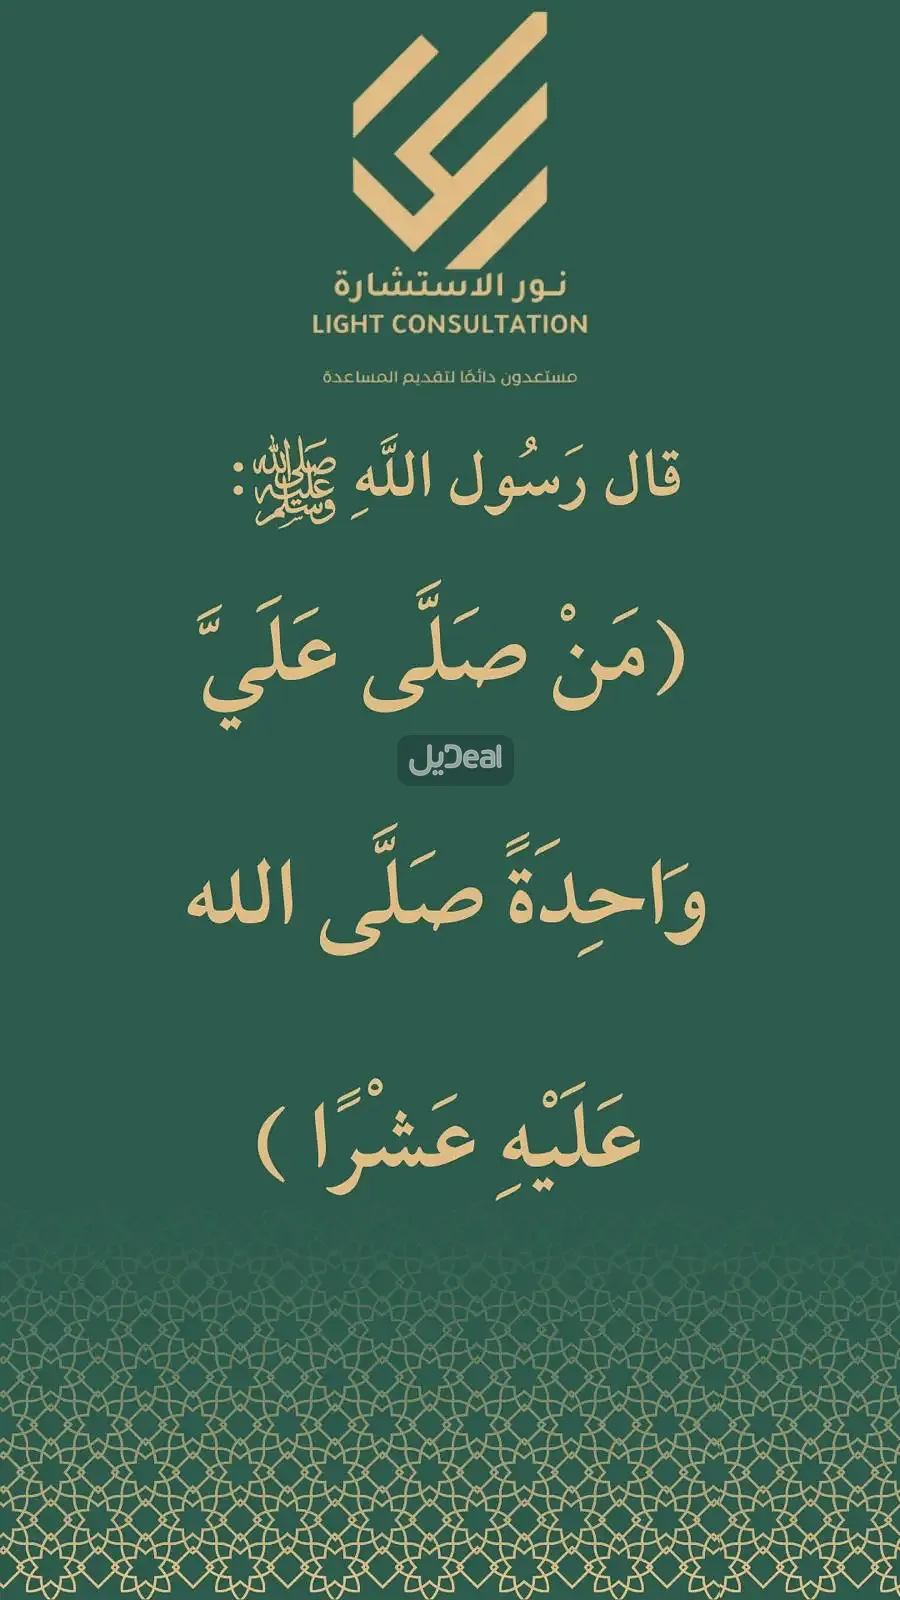 نور الاستشارة
LIGHT CONSULTATION
مستعدون دائمًا لتقديم المساعدة
قال رَسُول اللَّهِ ﷺ:
(مَنْ صَلَّى عَلَيَّ
ديلDeal
وَاحِدَةً صَلَّى الله
عَلَيْهِ عَشْرًا )